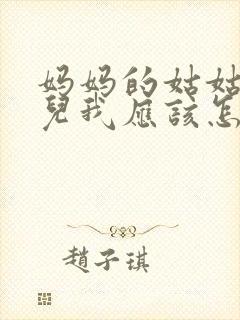 妈妈的姑姑
兒我應該怎
趙子琪